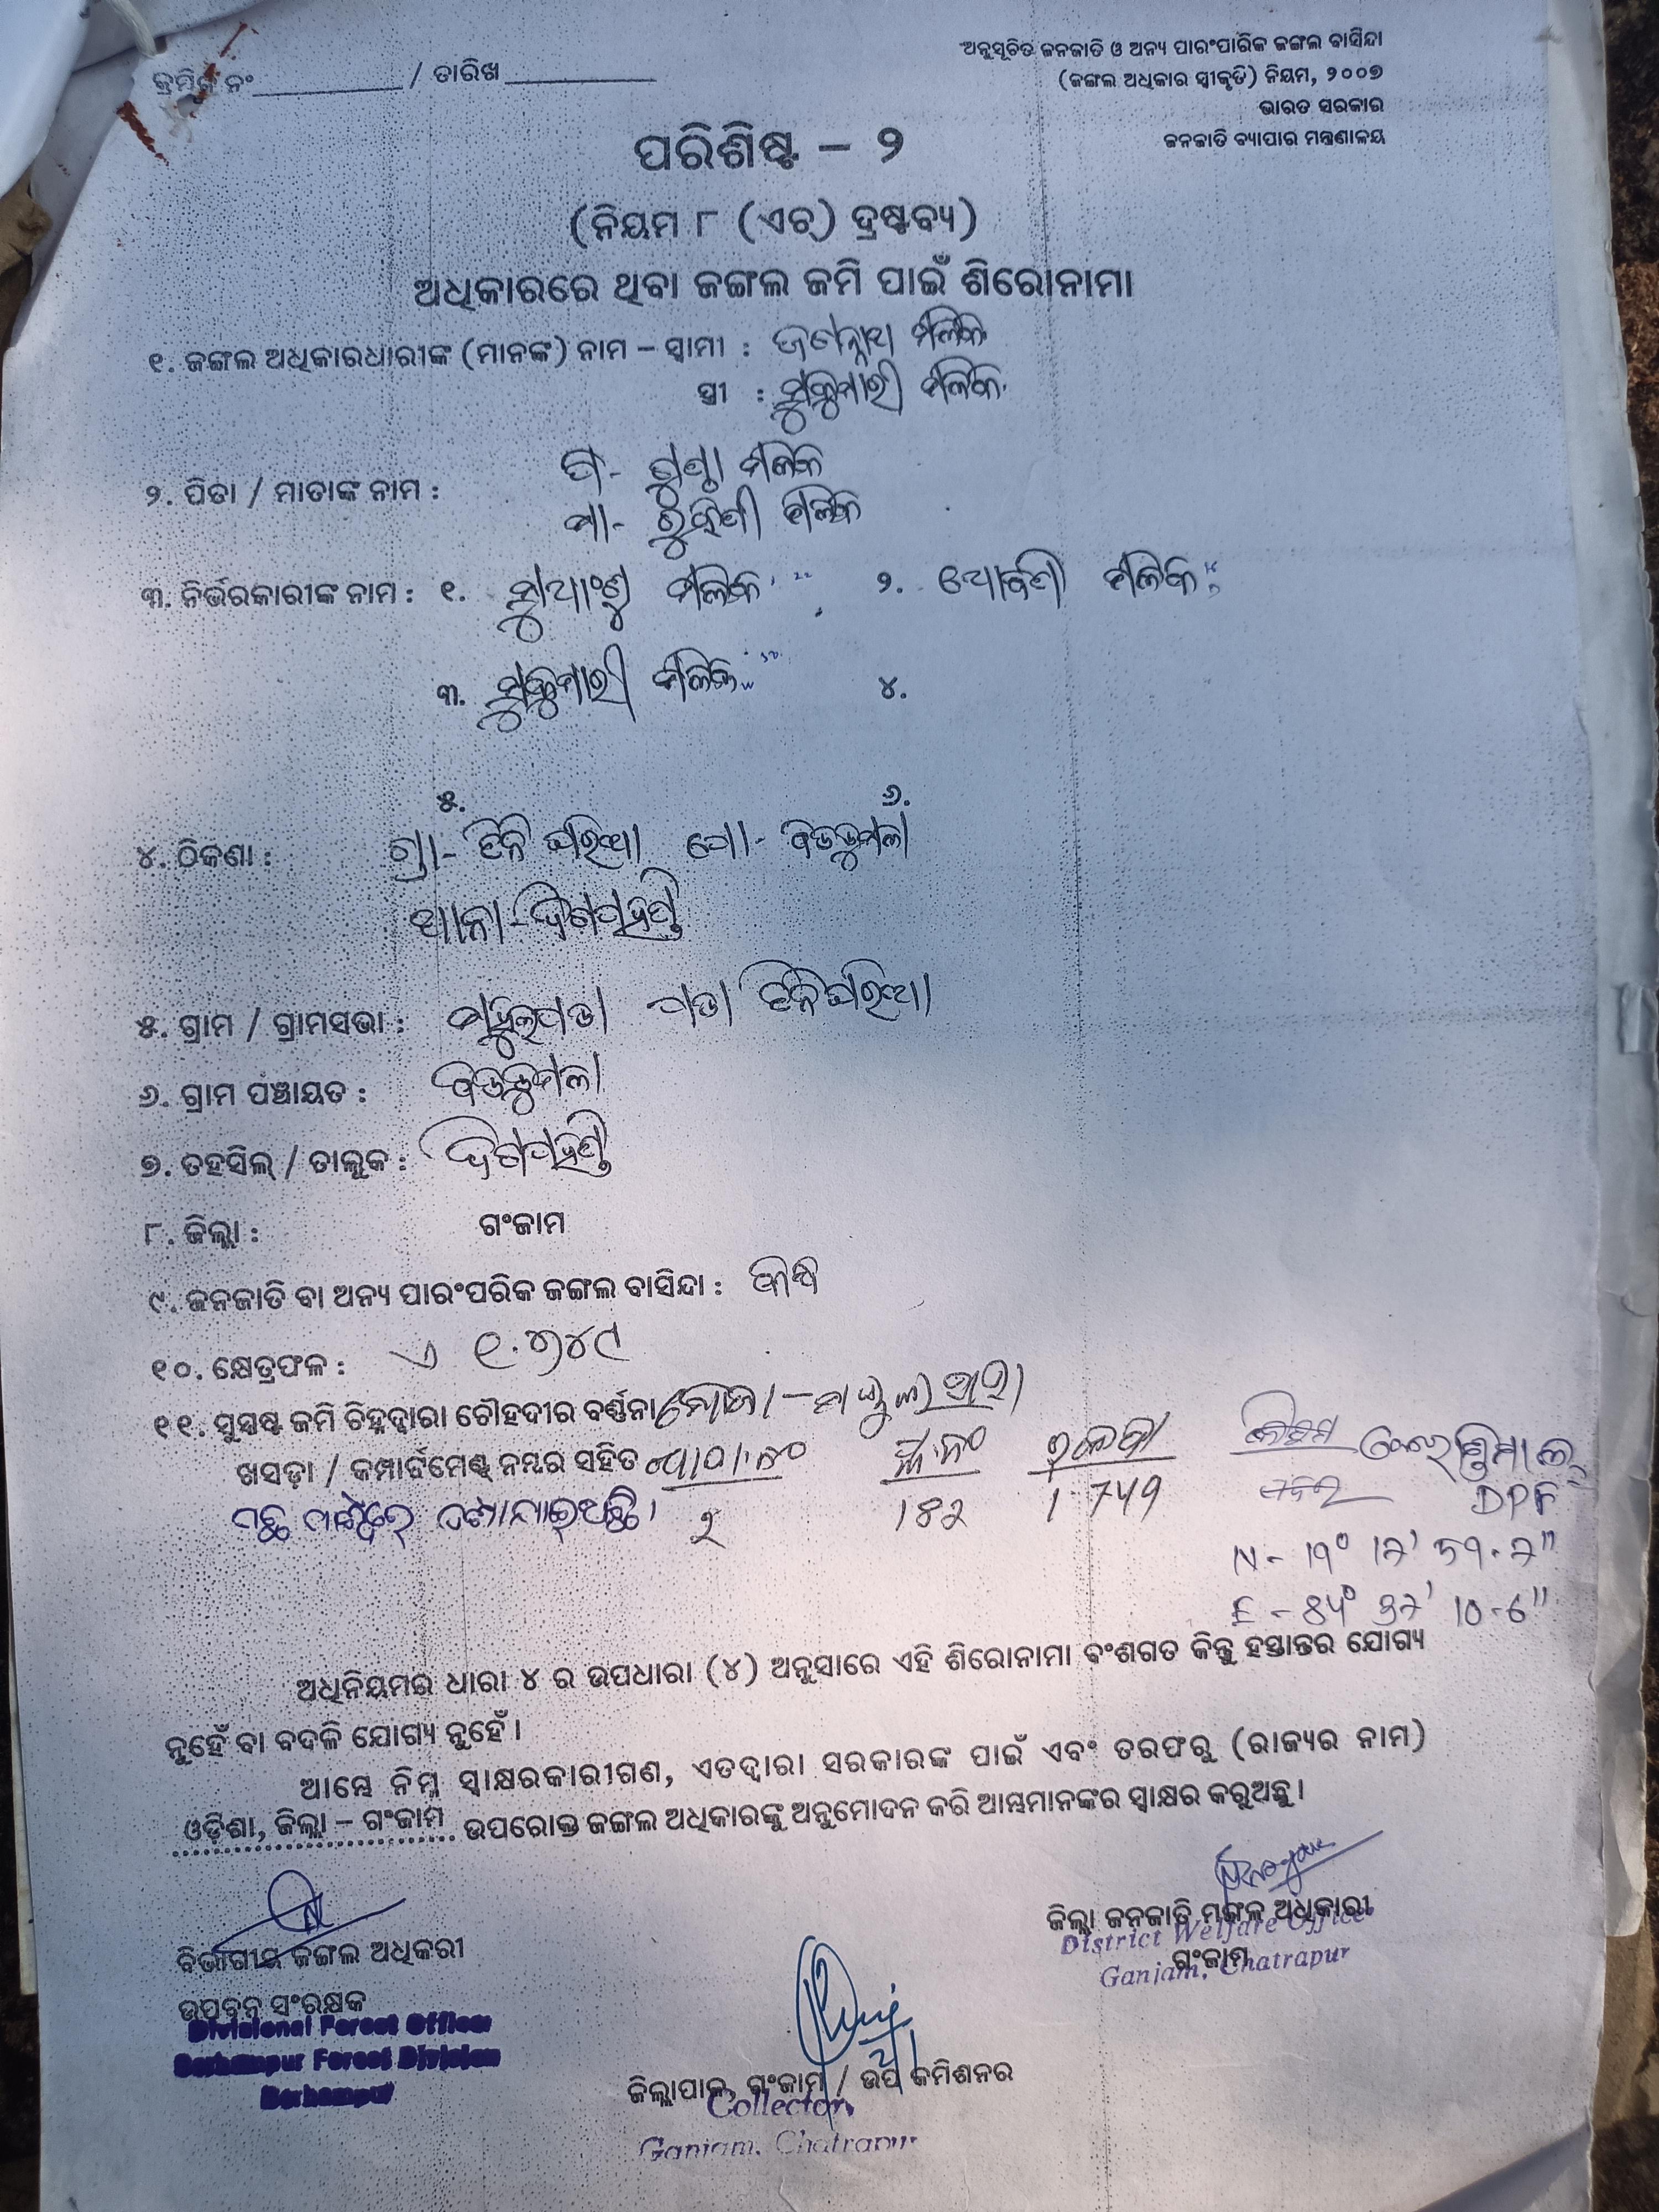 କ୍ରମିକ ନଂ ____________ / ତାରିଖ ____________
ଅନୁସୂଚିତ ଜନଜାତି ଓ ଅନ୍ୟ ପାରଂପାରିକ ଜଙ୍ଗଲ ବାସିନ୍ଦା
(ଜଙ୍ଗଲ ଅଧିକାର ସ୍ୱୀକୃତି) ନିୟମ, ୨୦୦୭
ଭାରତ ସରକାର
ଜନଜାତି ବ୍ୟାପାର ମନ୍ତ୍ରଣାଳୟ
ପରିଶିଷ୍ଟ – ୨
(ନିୟମ ୮ (ଏଚ୍) ଦ୍ରଷ୍ଟବ୍ୟ)
ଅଧିକାରରେ ଥିବା ଜଙ୍ଗଲ ଜମି ପାଇଁ ଶିରୋନାମା
୧. ଜଙ୍ଗଲ ଅଧିକାରଧାରୀଙ୍କ (ମାନଙ୍କ) ନାମ – ସ୍ୱାମୀ : ଜଗନ୍ନାଥ ମଲିକ
ସ୍ତ୍ରୀ : ସୁକୁମାରୀ ମଲିକ
ପି- ଗୁଣ୍ଠା ମଲିକ
୨. ପିତା / ମାତାଙ୍କ ନାମ :
ମା- ମଲିକ
୩. ନିର୍ଭରକାରୀଙ୍କ ନାମ : ୧. ମଲିକ ୨. ମଲିକ
୩. ସୁକୁମାରୀ ମଲିକ ୪.
୫. ୬.
୪. ଠିକଣା : ଗ୍ରା- ତିନିଘରିଆ ପୋ-
ଥାନା- ଦିଗପହଣ୍ଡି
୫. ଗ୍ରାମ / ଗ୍ରାମସଭା : ତିନିଘରିଆ
୬. ଗ୍ରାମ ପଞ୍ଚାୟତ :
୭. ତହସିଲ୍ / ତାଲୁକ : ଦିଗପହଣ୍ଡି
୮. ଜିଲ୍ଲା : ଗଂଜାମ
୯. ଜନଜାତି ବା ଅନ୍ୟ ପାରଂପରିକ ଜଙ୍ଗଲ ବାସିନ୍ଦା : କନ୍ଧ
୧୦. କ୍ଷେତ୍ରଫଳ : ଏ ୧.୭୪୯
୧୧. ସୁସ୍ପଷ୍ଟ ଜମି ଚିହ୍ନଦ୍ୱାରା ଚୌହଦୀର ବର୍ଣ୍ଣନା ମୌଜା –
ଖସଡ଼ା / କମ୍ପାର୍ଟମେଣ୍ଟ ନମ୍ବର ସହିତ ପ୍ଲଟ ନଂ ରକବା କିସମ
ପଛ ପାର୍ଶ୍ୱରେ ଦର୍ଶାଯାଇଅଛି। ୨ 182 1.749 DPF
N - 19° 17' 39.7"
E - 84° 37' 10.6"
ଅଧିନିୟମର ଧାରା ୪ ର ଉପଧାରା (୪) ଅନୁସାରେ ଏହି ଶିରୋନାମା ବଂଶଗତ କିନ୍ତୁ ହସ୍ତାନ୍ତର ଯୋଗ୍ୟ
ନୁହେଁ ବା ବଦଳି ଯୋଗ୍ୟ ନୁହେଁ ।
ଆମ୍ଭେ ନିମ୍ନ ସ୍ୱାକ୍ଷରକାରୀଗଣ, ଏତଦ୍ୱାରା ସରକାରଙ୍କ ପାଇଁ ଏବଂ ତରଫରୁ (ରାଜ୍ୟର ନାମ)
ଓଡ଼ିଶା, ଜିଲ୍ଲା – ଗଂଜାମ ଉପରୋକ୍ତ ଜଙ୍ଗଲ ଅଧିକାରଙ୍କୁ ଅନୁମୋଦନ କରି ଆମ୍ଭମାନଙ୍କର ସ୍ୱାକ୍ଷର କରୁଅଛୁ ।
ଜିଲ୍ଲା ଜନଜାତି ମଙ୍ଗଳ ଅଧିକାରୀ
District Welfare Officer
ଗଂଜାମ
Ganjam, Chatrapur
ବିଭାଗୀୟ ଜଙ୍ଗଲ ଅଧିକରୀ
ଉପବନ ସଂରକ୍ଷକ
Divisional Forest Officer
Berhampur Forest Division
Berhampur
ଜିଲ୍ଲାପାଳ, ଗଂଜାମ / ଉପ କମିଶନର
Collector,
Ganjam, Chatrapur